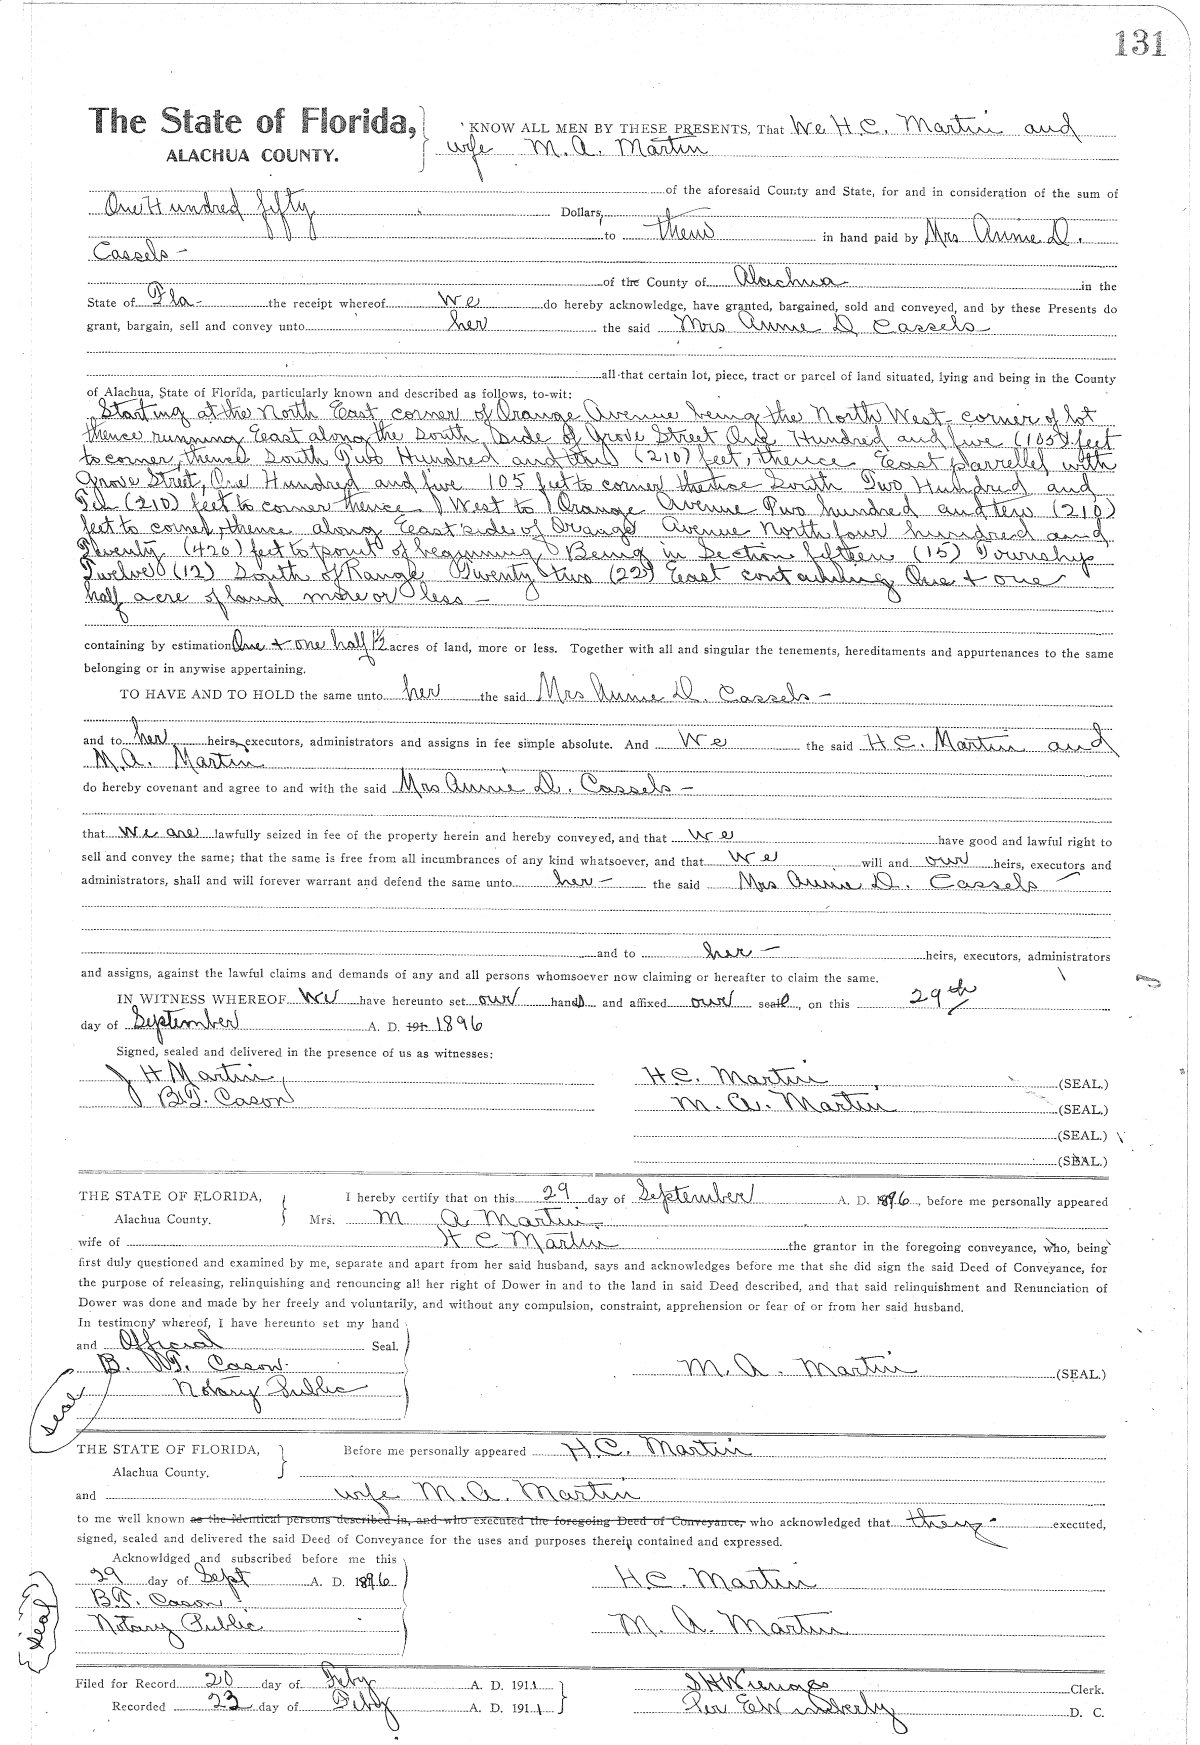 131
The State of Florida, KNOW ALL MEN BY THESE PRESENTS, That We H.C. Martin and
ALACHUA COUNTY. wife M.A. Martin
of the aforesaid County and State, for and in consideration of the sum of
One Hundred fifty Dollars,
to them in hand paid by Mrs Annie D.
Cassels -
of the County of Alachua in the
State of Fla- the receipt whereof we do hereby acknowledge, have granted, bargained, sold and conveyed, and by these Presents do
grant, bargain, sell and convey unto her the said Mrs Annie D Cassels
all that certain lot, piece, tract or parcel of land situated, lying and being in the County
of Alachua, State of Florida, particularly known and described as follows, to-wit:
Starting at the North East corner of Orange Avenue being the North West corner of lot
thence running East along the South side of Grove Street One Hundred and five (105) feet
to corner, thence South Two Hundred and ten (210) feet, thence East parrellel with
Grove Street, One Hundred and five 105 feet to corner thence South Two Hundred and
Ten (210) feet to corner thence West to Orange Avenue Two hundred and ten (210)
feet to corner, thence along East side of Orange Avenue North four hundred and
Twenty (420) feet to point of beginning Being in Section fifteen (15) Township
Twelve (12) South of Range Twenty two (22) East containing One + one
half acre of land more or less -
containing by estimation One + one half 1½ acres of land, more or less. Together with all and singular the tenements, hereditaments and appurtenances to the same
belonging or in anywise appertaining.
TO HAVE AND TO HOLD the same unto her the said Mrs Annie D. Cassels -
and to her heirs, executors, administrators and assigns in fee simple absolute. And We the said H.C. Martin and
M.A. Martin
do hereby covenant and agree to and with the said Mrs Annie D. Cassels -
that we are lawfully seized in fee of the property herein and hereby conveyed, and that we have good and lawful right to
sell and convey the same; that the same is free from all incumbrances of any kind whatsoever, and that we will and our heirs, executors and
administrators, shall and will forever warrant and defend the same unto her - the said Mrs Annie D. Cassels -
and to her - heirs, executors, administrators
and assigns, against the lawful claims and demands of any and all persons whomsoever now claiming or hereafter to claim the same.
IN WITNESS WHEREOF We have hereunto set our hands and affixed our seal, on this 29th
day of September A. D. 191 1896
Signed, sealed and delivered in the presence of us as witnesses:
J H Martin H.C. Martin (SEAL.)
B.T. Cason M. A. Martin (SEAL.)
(SEAL.)
(SEAL.)
THE STATE OF FLORIDA, I hereby certify that on this 29 day of September A. D. 1896, before me personally appeared
Alachua County. Mrs. M A Martin
wife of H C Martin the grantor in the foregoing conveyance, who, being
first duly questioned and examined by me, separate and apart from her said husband, says and acknowledges before me that she did sign the said Deed of Conveyance, for
the purpose of releasing, relinquishing and renouncing all her right of Dower in and to the land in said Deed described, and that said relinquishment and Renunciation of
Dower was done and made by her freely and voluntarily, and without any compulsion, constraint, apprehension or fear of or from her said husband.
In testimony whereof, I have hereunto set my hand
and Official Seal.
B. T. Cason M. A. Martin (SEAL.)
Notary Public
Seal
THE STATE OF FLORIDA, Before me personally appeared H.C. Martin
Alachua County.
and wife M. A. Martin
to me well known as the identical persons described in, and who executed the foregoing Deed of Conveyance, who acknowledged that they executed,
signed, sealed and delivered the said Deed of Conveyance for the uses and purposes therein contained and expressed.
Acknowldged and subscribed before me this
29 day of Sept A. D. 1896 H.C. Martin
B.T. Cason
Notary Public M. A. Martin
Seal
Filed for Record 20 day of Feby A. D. 1911 S H Wienges Clerk.
Recorded 23 day of Feby A. D. 1911 Per E Wimberly D. C.